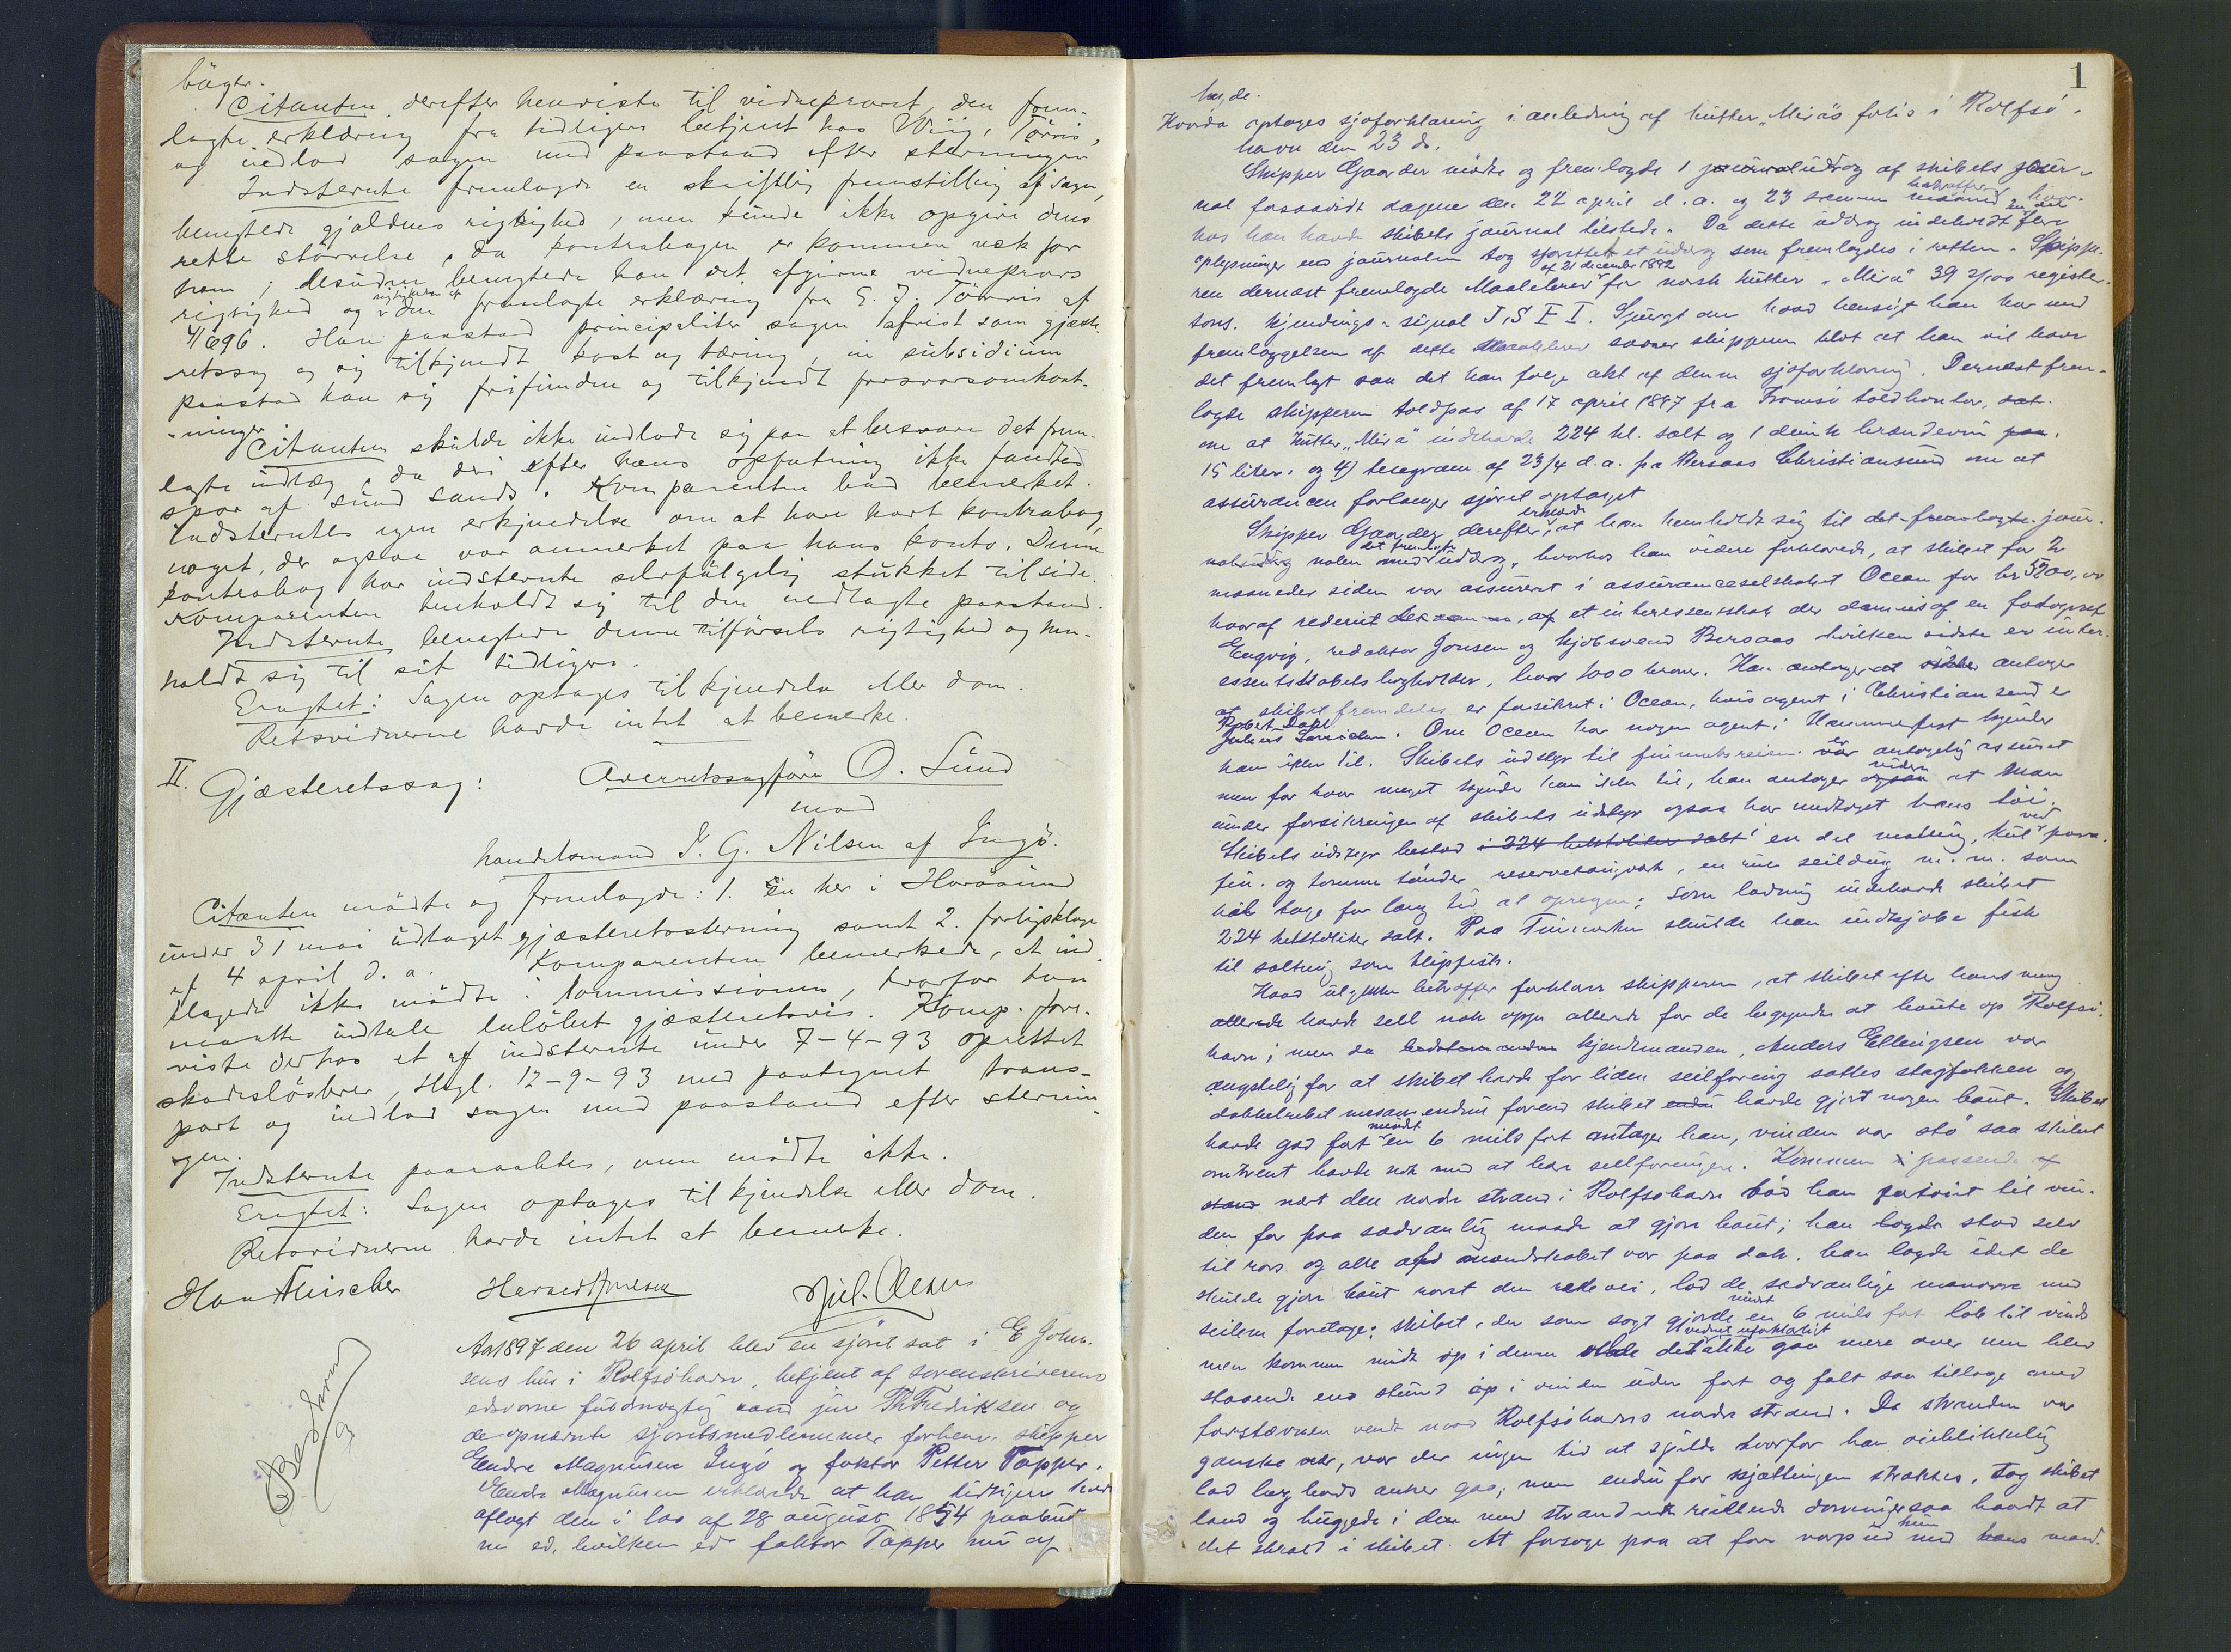 bøger.
Citanten derefter henviste til vidneprovet, den frem-
lagte erklæring fra tidligere betjent hos Wiig, Törris,
og indlod sagen med paastand efter stevningen
Indstevnte fremlagde en skriftlig fremstilling af sagen,
benegtede gjældens rigtighed, men kunde ikke opgive dens
rette störrelse, da kontrabogen er kommen væk for
ham; desuden benegtede han det afgivne vidneprovs
rigtighed og rigtigheden af den fremlagte erklæring fra E. J. Törris af
4/6 96. Han paastod principaliter sagen afvist som gjæste-
retssag og sig tilkjendt kost og tæring, in subsidium
paastod han sig frifunden og tilkjendt forsvarsomkost-
-ninger
Citanten skulde ikke indlade sig paa at besvare det frem-
lagte indlæg, da der efter hans opfatning ikke fandtes
spor af sund sands. Komparenten bad bemerket
indstevntes egen erkjendelse om at have havt kontrabog
noget, der ogsaa var anmerket paa hans konto. Denne
kontrabog har indstevnte selvfølgelig stukket tilside.
Komparenten henholdt sig til den nedlagte paastand.
Indstevnte benegtede denne tilförsels rigtighed og hen-
holdt sig til sit tidligere.
Eragtet: Sagen optages til kjendelse eller dom.
Retsvidnerne havde intet at bemerke.
II. Gjæsteretssag: Overretssagförer O. Sund
mod
handelsmand I. G. Nilsen af Ingö.
Citanten mödte og fremlagde: 1. En her i Havösund
under 31 mai udtaget gjæsteretsstevning samt 2. forligsklage
af 4 april d. a. Komparenten bemerkede, at ind-
klagede ikke mödte i kommissionen, hvorfor han
maatte indtale beløbet gjæsteretsvis. Komp. fore-
viste derhos et af indstevnte under 7-4-93 oprettet
skadeslösbrev, thgl. 12-9-93 med paategnet trans-
port og indlod sagen med paastand efter stevnin-
gen.
Indstevnte paaraabtes, men mödte ikke.
Eragtet: Sagen optages til kjendelse eller dom.
Retsvidnerne havde intet at bemerke.
Ao 1897 den 26 april blev en sjöret sat i E John-
sens hus i Rolfsöhavn, betjent af sorenskriverens
edsvorne fuldmægtig cand jur Th Fredriksen og
de opnævnte sjöretsmedlemmer forhenv. skipper
Endre Magnusen Ingö og faktor Petter Tapper.
Endre Magnusen erklærede at han tidligere havde
aflagt den i lov af 28 august 1854 paabud-
ne ed, hvilken ed faktor Tapper nu af-
1
lagde.
Hvorda optages sjøforklaring i anledning af kutter "Mira's" forlis i Rolfsö-
havn den 23 ds.
Skipper Gaarder mödte og fremlagde 1 udtog af skibets jour-
nal forsaavidt dagene den 22 april d. a. og 23 samme maaned
hos han havde skibets journal tilstede. Da dette uddrag indeholdt flere
oplysninger end journalen tog sjøretten et uddrag som fremlagdes i retten. Skippe-
ren dernæst fremlagde Maalebrev af 21 december 1892 for norsk kutter "Mira" 39 2/100 register-
tons. Kjendings-signal J, S F I. Spurgt om hvad hensigt han har med
fremlæggelsen af dette svarer skipperen blot at han vil have
det fremlagt saa det kan følge akt af denne sjøforklaring. Dernæst frem-
lagde skipperen toldpas af 17 april 1897 fra Tromsö toldkontor,
om at kutter "Mira" indehavde 224 hl. salt og 1 dunk brændevin
15 liter. og 4) telegram af 23/4 d. a. fra Bersaas Christiansund om at
assurancen forlanger sjöret optaget
Skipper Gaarder derefter, at han henholdt sig til det fremlagte jour-
uddrag, hvorhos han videre forklarede, at skibet for 2
maaneder siden var assureret i assuranceselskabet Ocean for kr 3700,00
hvoraf rederiet af et interessentskab der dannes af en fotograf
Engvig, redaktør Jonsen og kjøbmand Bersaas hvilken sidste er inter-
essentskabets bogholder, hver 1000 kroner. Han antager
at skibet fremdeles er forsikret i Ocean, hvis agent i Christiansund er
Robert Dahl. Om Ocean har nogen agent i Hammerfest kjender
han ikke til. Skibets udstyr til finmarksreisen er antagelig assureret
men for hvor meget kjender han ikke til, han antager videre at man
under forsikringen af skibets udstyr ogsaa har medtaget hans töi.
Skibets udstyr bestod i 224 hektoliter salt en del maling, kul ved para-
fin. og tomme tönder reservetaugverk, en rul seildug m. m. som
vil tage for lang tid at opregne; som ladning indehavde skibet
224 hektoliter salt. Paa Finmarken skulde han indkjøbe fisk
til saltning som klipfisk.
Hvad ulykken betræffer forklarer skipperen, at skibet efter hans mening
havde seil nok oppe allerede før de begyndte at baute op Rolfsö-
havn; men da kjendtmanden, Anders Ellingsen var
ængstelig for at skibet havde for liden seilföring sattes stagfokken og
dobbeltrebet mesan endnu forend skibet havde gjort nogen baut. Skibet
havde god fart mindst en 6 mils fart antager han, vinden var stö saa skibet
omtrent havde nok med at bære seilföringen. Kommen i passende af-
stand nær den nordre strand i Rolfsöhavn lod han skibet til vin-
den for paa sædvanlig maade at gjøre baut; han stod selv
til rors og alle af mandskabet var paa dæk. han lagde idet de
skulde gjøre baut roret den rette vei, lod de sædvanlige manövre med
seilene foretage; skibet, der som sagt gjorde mindst en 6 mils fart lob til vinds
men kommen midt op i denne vilde det ikke gaa mere over men blev
staaende end stund op i vinden uden fart og falt saa tilbage med
forstævnen vendt mod Rolfsöhavns nordre strand. Da stranden var
ganske nær, var der ingen tid at spilde hvorfor han øieblikkelig
lod bagbords anker gaa, men endnu før kjættingen straktes, tog skibet
land og huggede i den mod stranden rullende dönninger saa haardt at
det skreg i skibet. At forsøge paa at faa varp ud med hans mand-